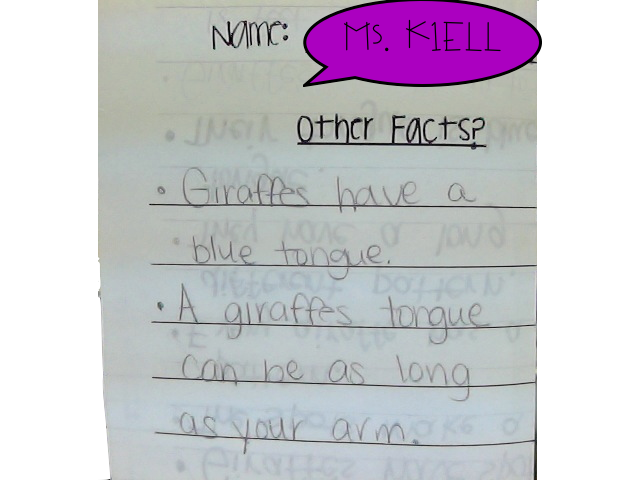 Name: Ms. KIELL
Other Facts?
• Giraffes have a
blue tongue.
• A giraffes tongue
can be as long
as your arm.